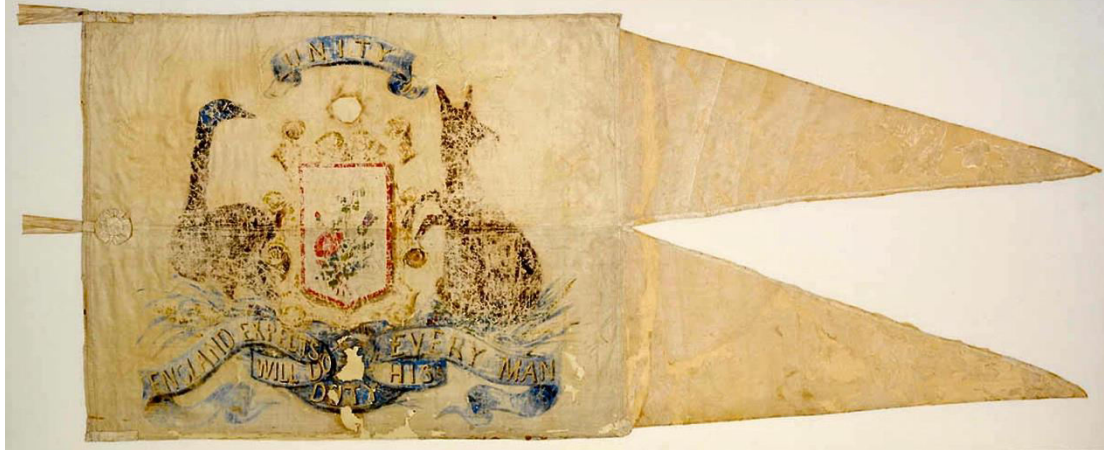 UNITY
ENGLAND EXPECTS EVERY MAN
WILL DO HIS
DUTY